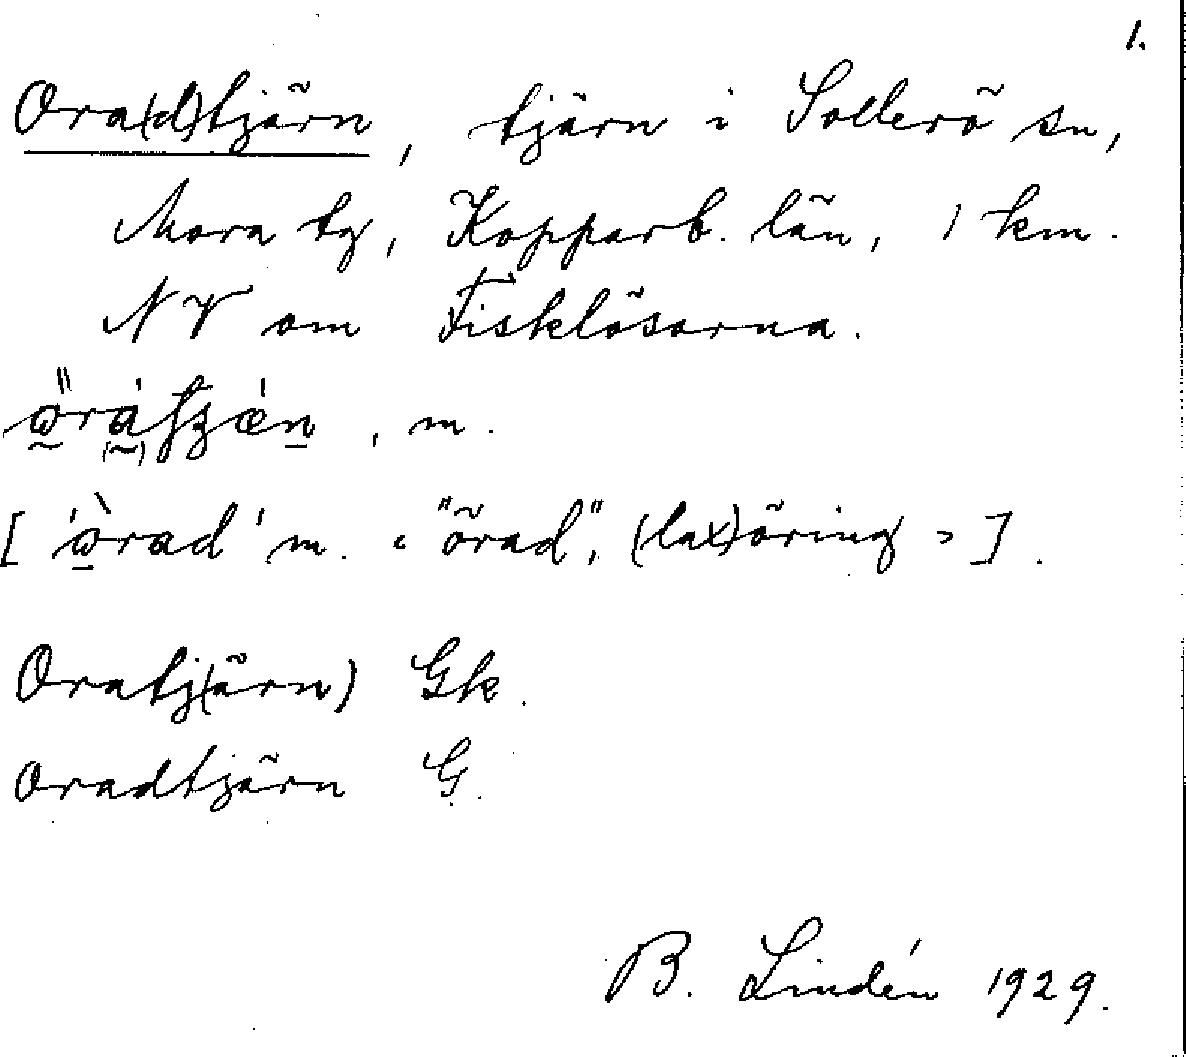 1.
Ora(d)tjärn, tjärn i Sollerö sn,
Mora tg, Kopparb. län, 1 km.
NV om Fisklösarna.
, m.
m. "örad", (lax)öring > ].
Oratj(ärn) Gk.
Oradtjärn G.
B. Lindén 1929.